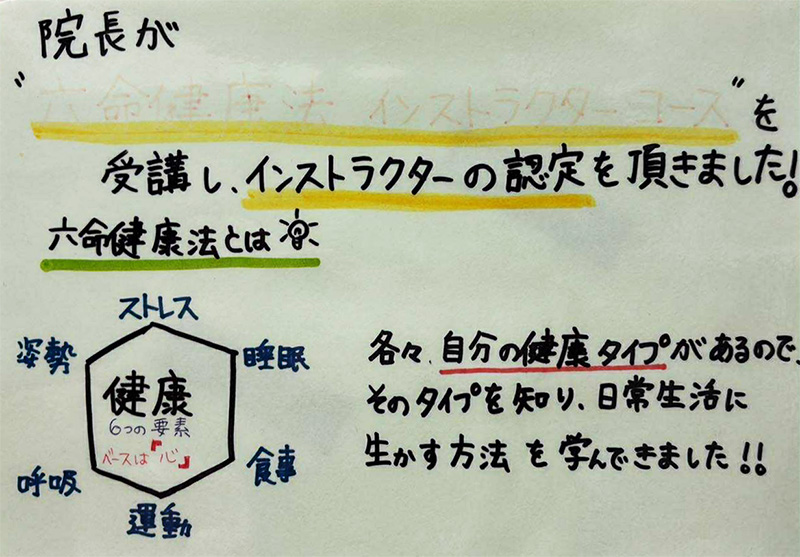 院長が
"六命健康法 インストラクターコース"を
受講し、インストラクターの認定を頂きました!
六命健康法とは
ストレス
姿勢
睡眠
健康
6つの要素
ベースは『心』
呼吸
食事
運動
各々、自分の健康タイプがあるので、
そのタイプを知り、日常生活に
生かす方法を学んできました!!